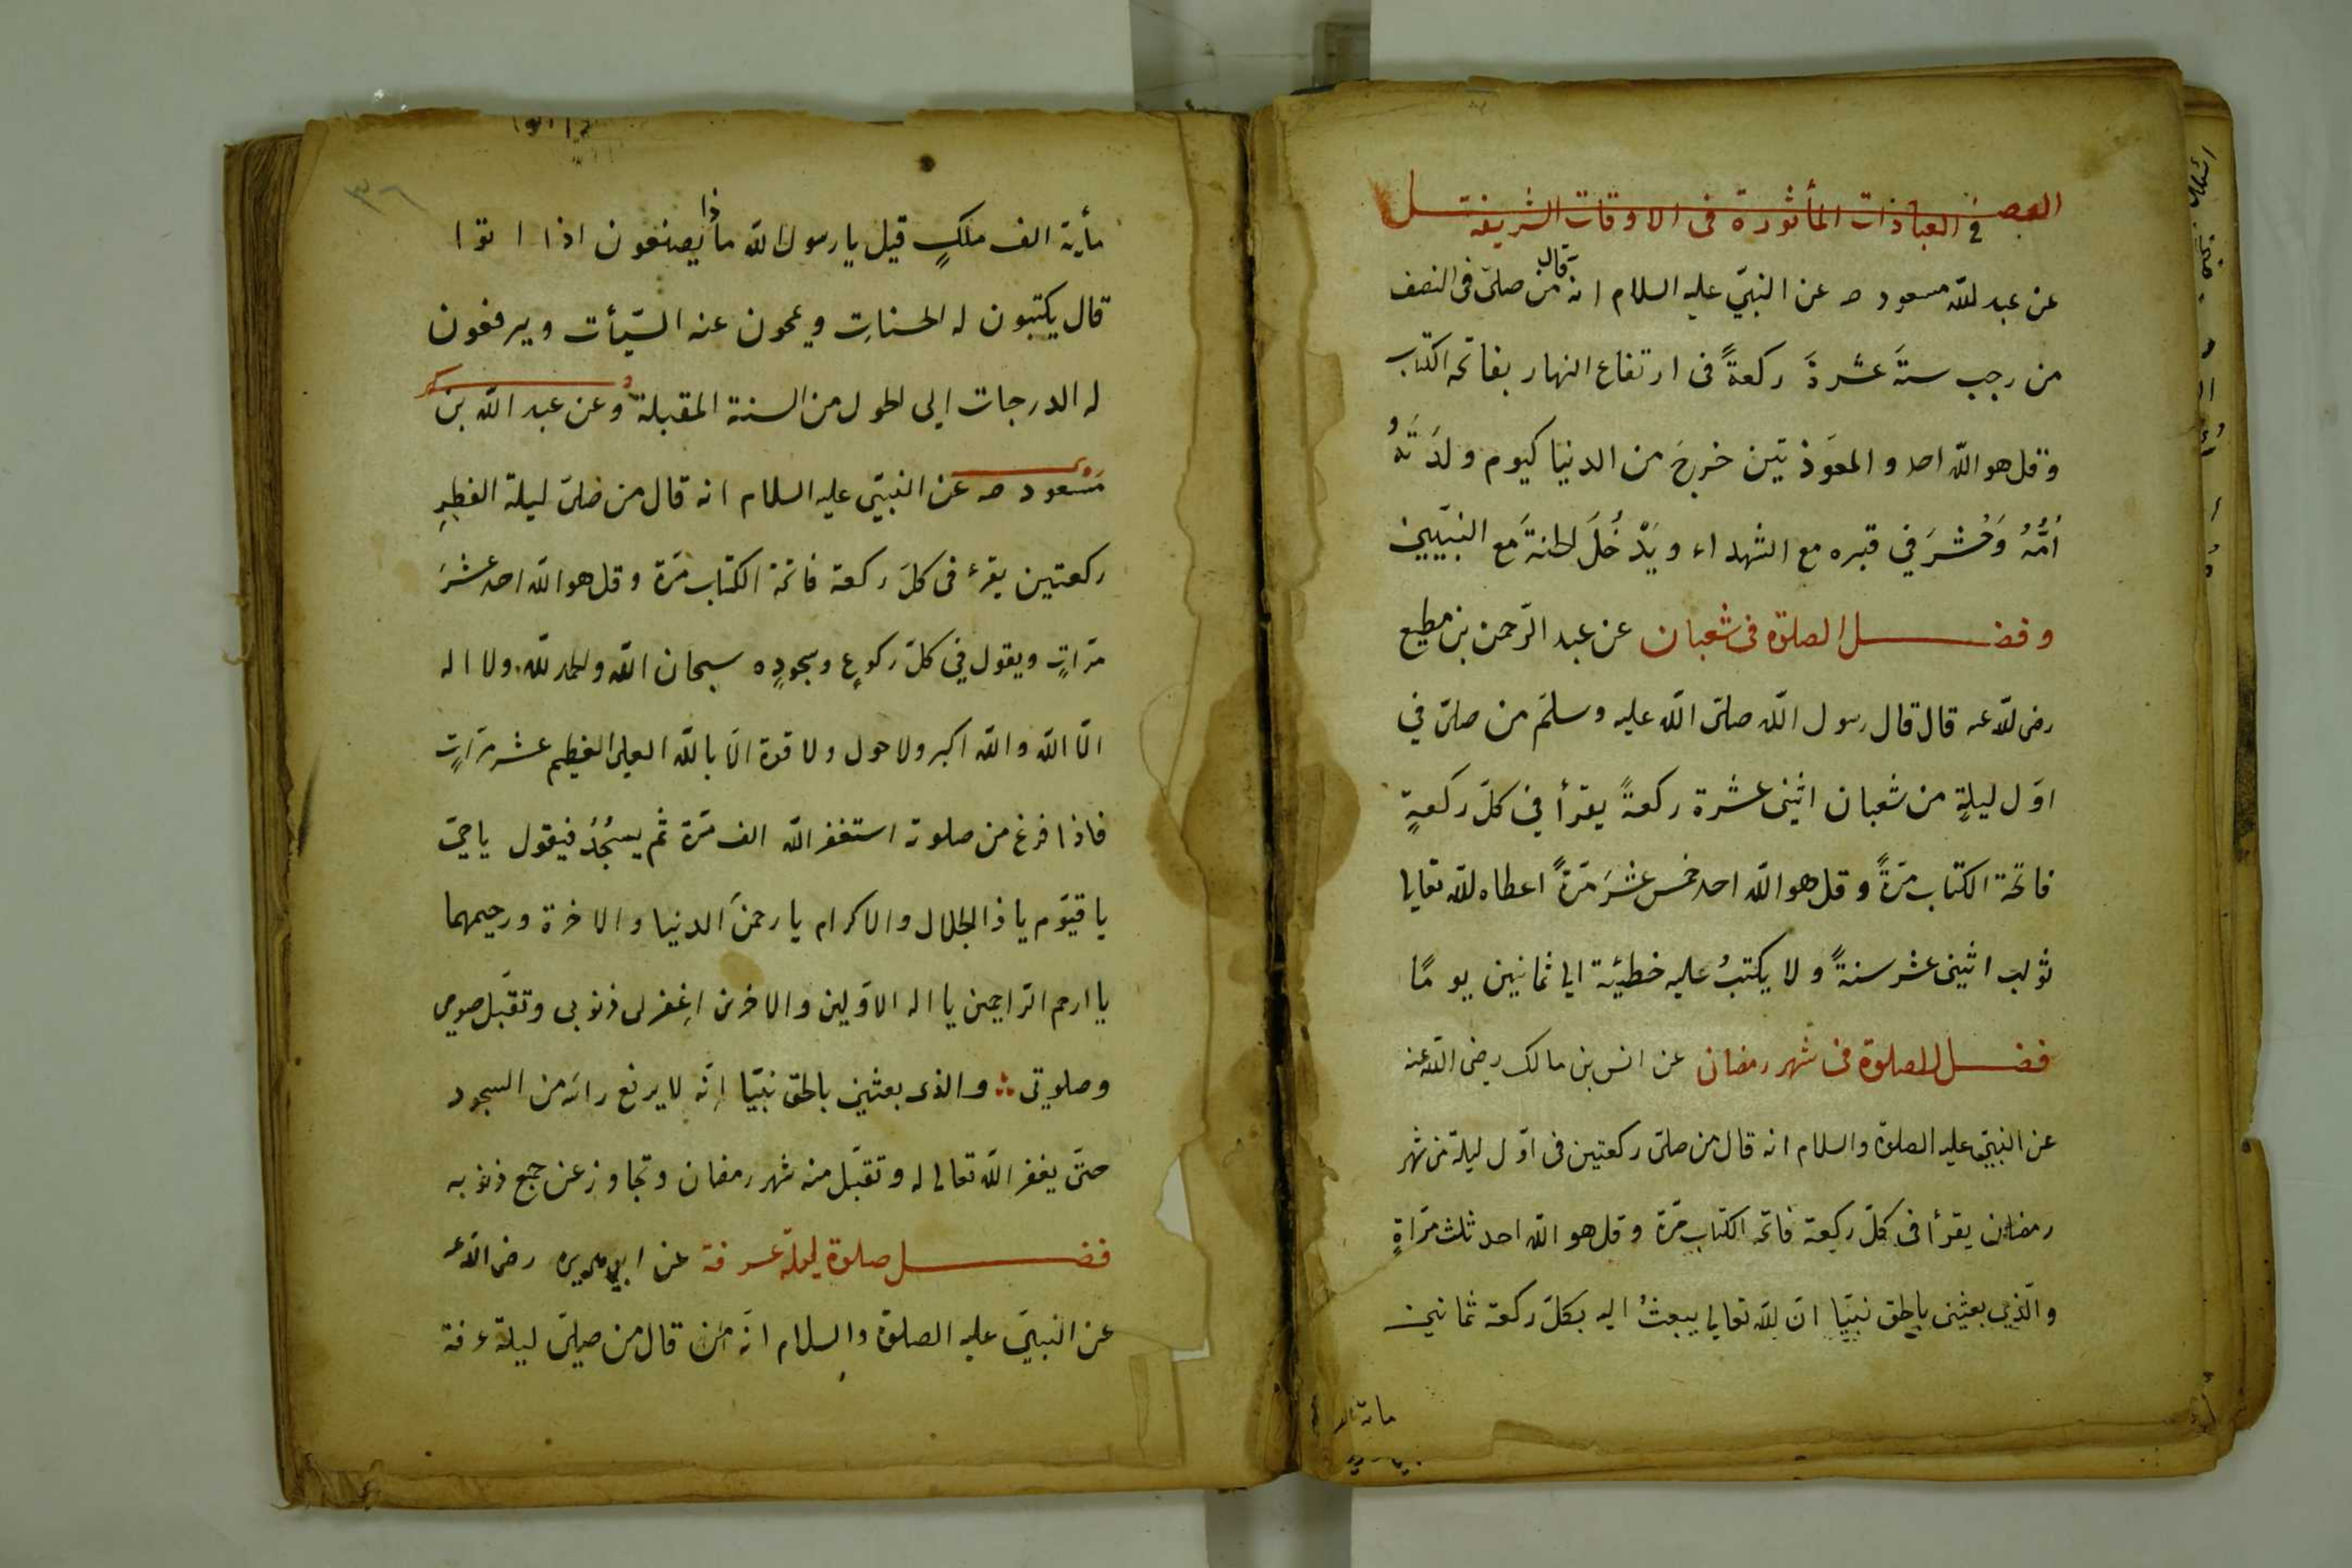 الفصل في العبادات المأثورة فى الاوقات الشريفة
عن عبد الله مسعود رضـ عن النبىّ عليه السلام انه قال من صلىّ فى النصف
من رجب ستةَ عشرةَ ركعةً فى ارتفاع النهار بفاتحه الكتاب
وقل هو الله احد والمعوّذتين خرجَ من الدنيا كيوم ولدَتَهُ
اُمُّهُ وَحُشرَ في قبره مع الشهداء ويَدْخُلَ الجنةَ مع النبيّين
وفضل الصلوة فى شعبان عن عبد الرّحمن بن مطيع
رضى الله عنه قال قال رسول الله صلىّ الله عليه وسلمّ من صلىّ في
اوّل ليلةٍ من شعبان اثنى عشرة ركعةً يقرأ في كلّ ركعةٍ
فاتحة الكتاب مرّةً وقل هو الله احد خمس عشرَ مرّةً اعطاه الله تعالى
ثواب اثنى عشر سنةً ولا يكتبُ عليه خطيئة الى ثمانين يومًا
فضل الصلوة فى شهر رمضان عن انس بن مالك رضى الله عنه
عن النبىّ عليه الصلوة والسلام انه قال من صلىّ ركعتين فى اوّل ليلة من شهر
رمضان يقرأ فى كلّ ركعة فاتحه الكتاب مرّة وقل هو الله احد ثلث مرّاةٍ
والذّي بعثنى بالحق نبيّا انّ لله تعالى يبعثُ اليه بكلّ ركعة ثمانين
مأية الف ملكٍ قيل يا رسول الله ماذا يصنعون اذا اتوا
قال يكتبون له الحسناتِ ويمحون عنه السّيأت ويرفعون
له الدرجات الى الحول من السنة المقبلة وعن عبد الله بن
مَسْعود رضـ عن النبيّ عليه السلام انه قال من صلىّ ليلة الفطرِ
ركعتين يقرء فى كلّ ركعة فاتحة الكتاب مرّة وقل هو الله احد عشرَ
مرّاتٍ ويقول في كلّ ركوعٍ وسجودِه سبحان الله والحمد لله ولا اله
الّا الله والله اكبر ولا حول ولا قوة الّا بالله العلى العظيم عشر مرّاتٍ
فاذا فرغ من صلوته استغفر الله الف مرّة ثم يسجُدُ فيقول يا حيّ
يا قيّوم يا ذالجلال والاكرام يا رحمنَ الدنيا والاخرة ورحيمهما
يا ارحم الرّاحمين يا اله الاوّلين والاخرين اغِفرلى ذنوبى وتقبّل صومى
وصلوتى والذى بعثنى بالحق نبيّا انّه لا يرفع راسه من السجود
حتىّ يغفر الله تعالى له وتقبّل منه شهر رمضان وتجاوز عن جميع ذنوبه
فضل صلوة ليلة عرفة عن ابى هريره رضى الله عنه
عن النبيّ عليه الصلوة والسلام انّه من قال من صلىّ ليلة عرفة